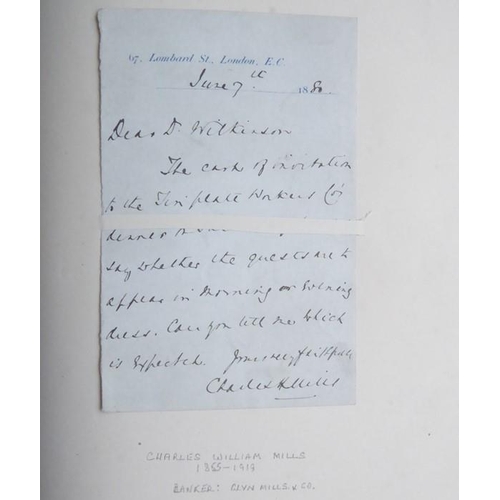 67, Lombard St, London, E.C.
June 7th 1880.
Dear Dr Wilkinson
The card of invitation
to the Tin plate Workers Co
dinner
say whether the guests are to
appear in Morning or Evening
dress. Can you tell me which
is expected. Yours very faithfully
Charles W Mills
CHARLES WILLIAM MILLS
1855-1919
BANKER: GLYN MILLS & CO.